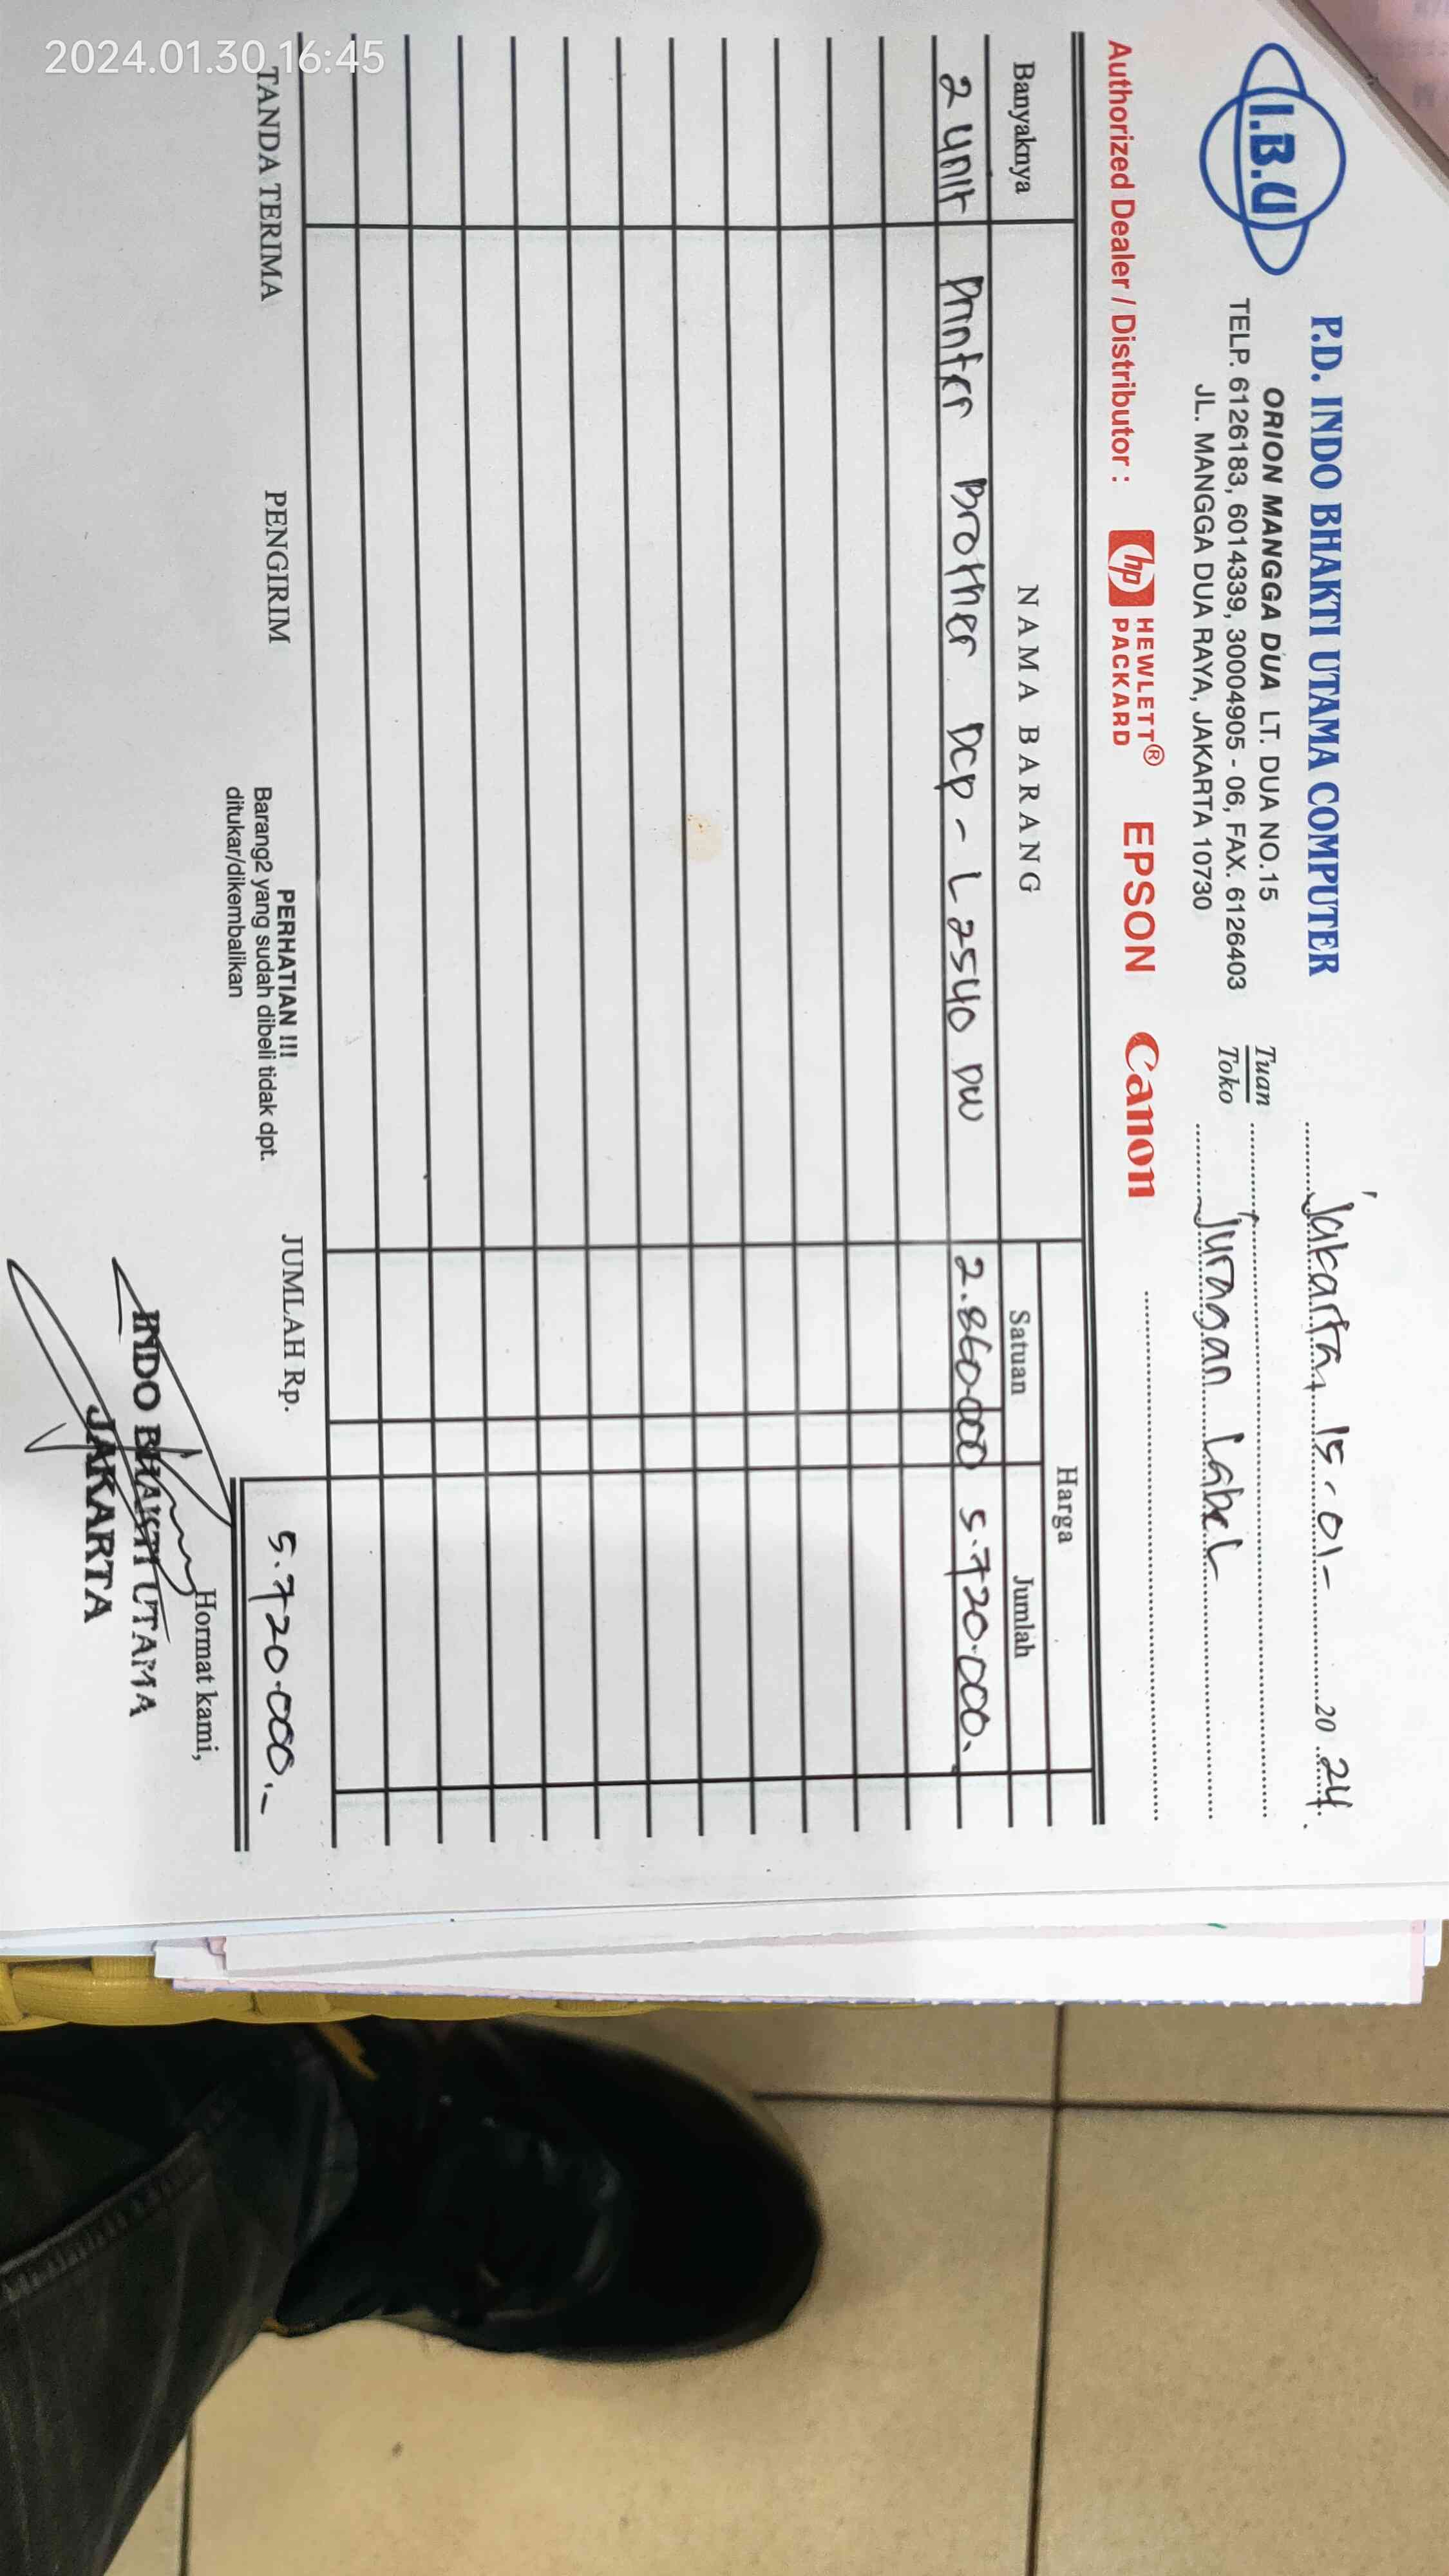 2024.01.30 16:45
I.B.U
P.D. INDO BHAKTI UTAMA COMPUTER
ORION MANGGA DUA LT. DUA NO.15
TELP. 6126183, 6014339, 30004905 - 06, FAX. 6126403
JL. MANGGA DUA RAYA, JAKARTA 10730
Jakarta, 15-01- 20 24.
Tuan
Toko Juragan Label
Authorized Dealer / Distributor : hp HEWLETT® PACKARD EPSON Canon
Banyaknya NAMA BARANG Harga
Satuan Jumlah
2 unit Printer Brother DCP - L2540 DW 2.860.000 5.720.000.
TANDA TERIMA PENGIRIM PERHATIAN !!! JUMLAH Rp. 5.720.000.-
Barang2 yang sudah dibeli tidak dpt.
ditukar/dikembalikan
Hormat kami,
INDO BHAKTI UTAMA
JAKARTA